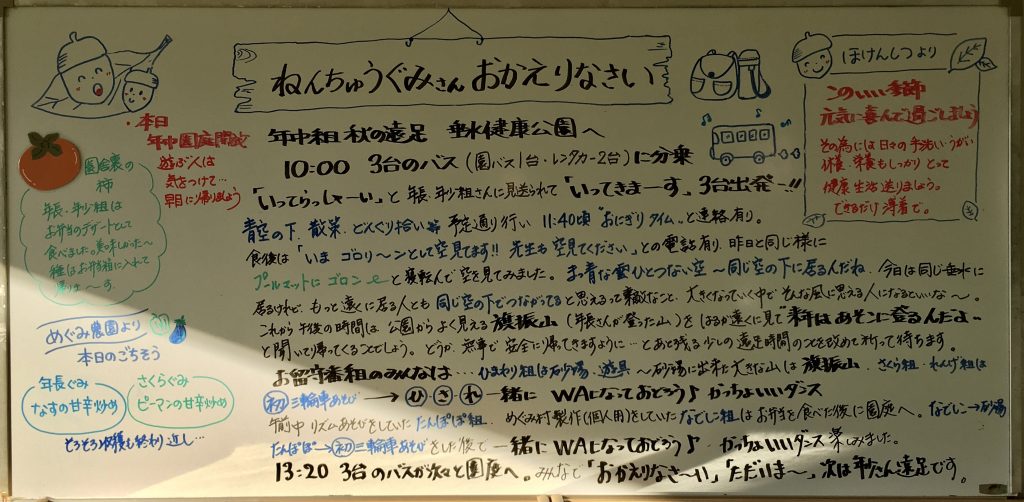 ねんちゅうぐみさん おかえりなさい
年中組 秋の遠足 垂水健康公園へ
10:00 3台のバス(園バス1台・レンタカー2台)に分乗
「いってらっしゃーい」と 年長・年少組さんに見送られて「いってきまーす」3台出発ー!!
青空の下、散策、どんぐり拾い等 予定通り行い 11:40頃 "おにぎりタイム"と連絡有り。
食後は「いま ゴロリ〜ンとして空見てます!! 先生も空見てください」との電話有り、昨日と同じ様に
プールマットにゴロンと寝転んで空を見てみました。まっ青な雲ひとつない空〜同じ空の下に居るんだね、今日は同じ垂水に
居るけれど、もっと遠くに居る人とも 同じ空の下でつながってると思えるって素敵なこと、大きくなっていく中で そんな風に思える人になるといいな〜。
これから午後の時間は 公園からよく見える旗振山(年長さんが登った山)をはるか遠くに見て 来年はあそこに登るんだよ〜
と聞いて帰ってくることでしょう。どうか、無事で安全に帰ってきますように…とあと残る少しの遠足時間のことを改めて祈って待ちます。
お留守番組のみんなは…ひまわり組は砂場・遊具 〜砂場に出来た大きな山は 旗振山、さくら組・れんげ組は
㋧三輪車あそび → ひ さ れ 一緒に WAになっておどろう♪ かっちょいいダンス
午前中 リズムあそびをしていた たんぽぽ組、めぐみ村製作(個人用)をしていた なでしこ組は お弁当を食べた後に園庭へ。なでしこ→砂場
たんぽぽ→㋧三輪車あそび をした後で 一緒に WAになっておどろう♪ かっちょいいダンス 楽しみました。
13:20 3台のバスが次々と園庭へ。みんなで「おかえりなさ〜い」「ただいま〜」次は年少さん遠足です。
・本日
年中園庭開放
遊ぶ人は
気をつけて…
早目に帰りましょう
園舎裏の
柿
年長・年少組は
お弁当のデザートとして
食べました。美味しかった〜
種はお弁当箱に入れて
帰りま〜す。
めぐみ農園より
本日のごちそう
年長ぐみ
なすの甘辛炒め
さくらぐみ
ピーマンの甘辛炒め
そろそろ収穫も終わり近し…
ほけんしつより
このいい季節
元気に喜んで過ごしましょう
その為には日々の手洗い・うがい
休養・栄養もしっかりとって
健康生活送りましょう。
できるだけ薄着で。